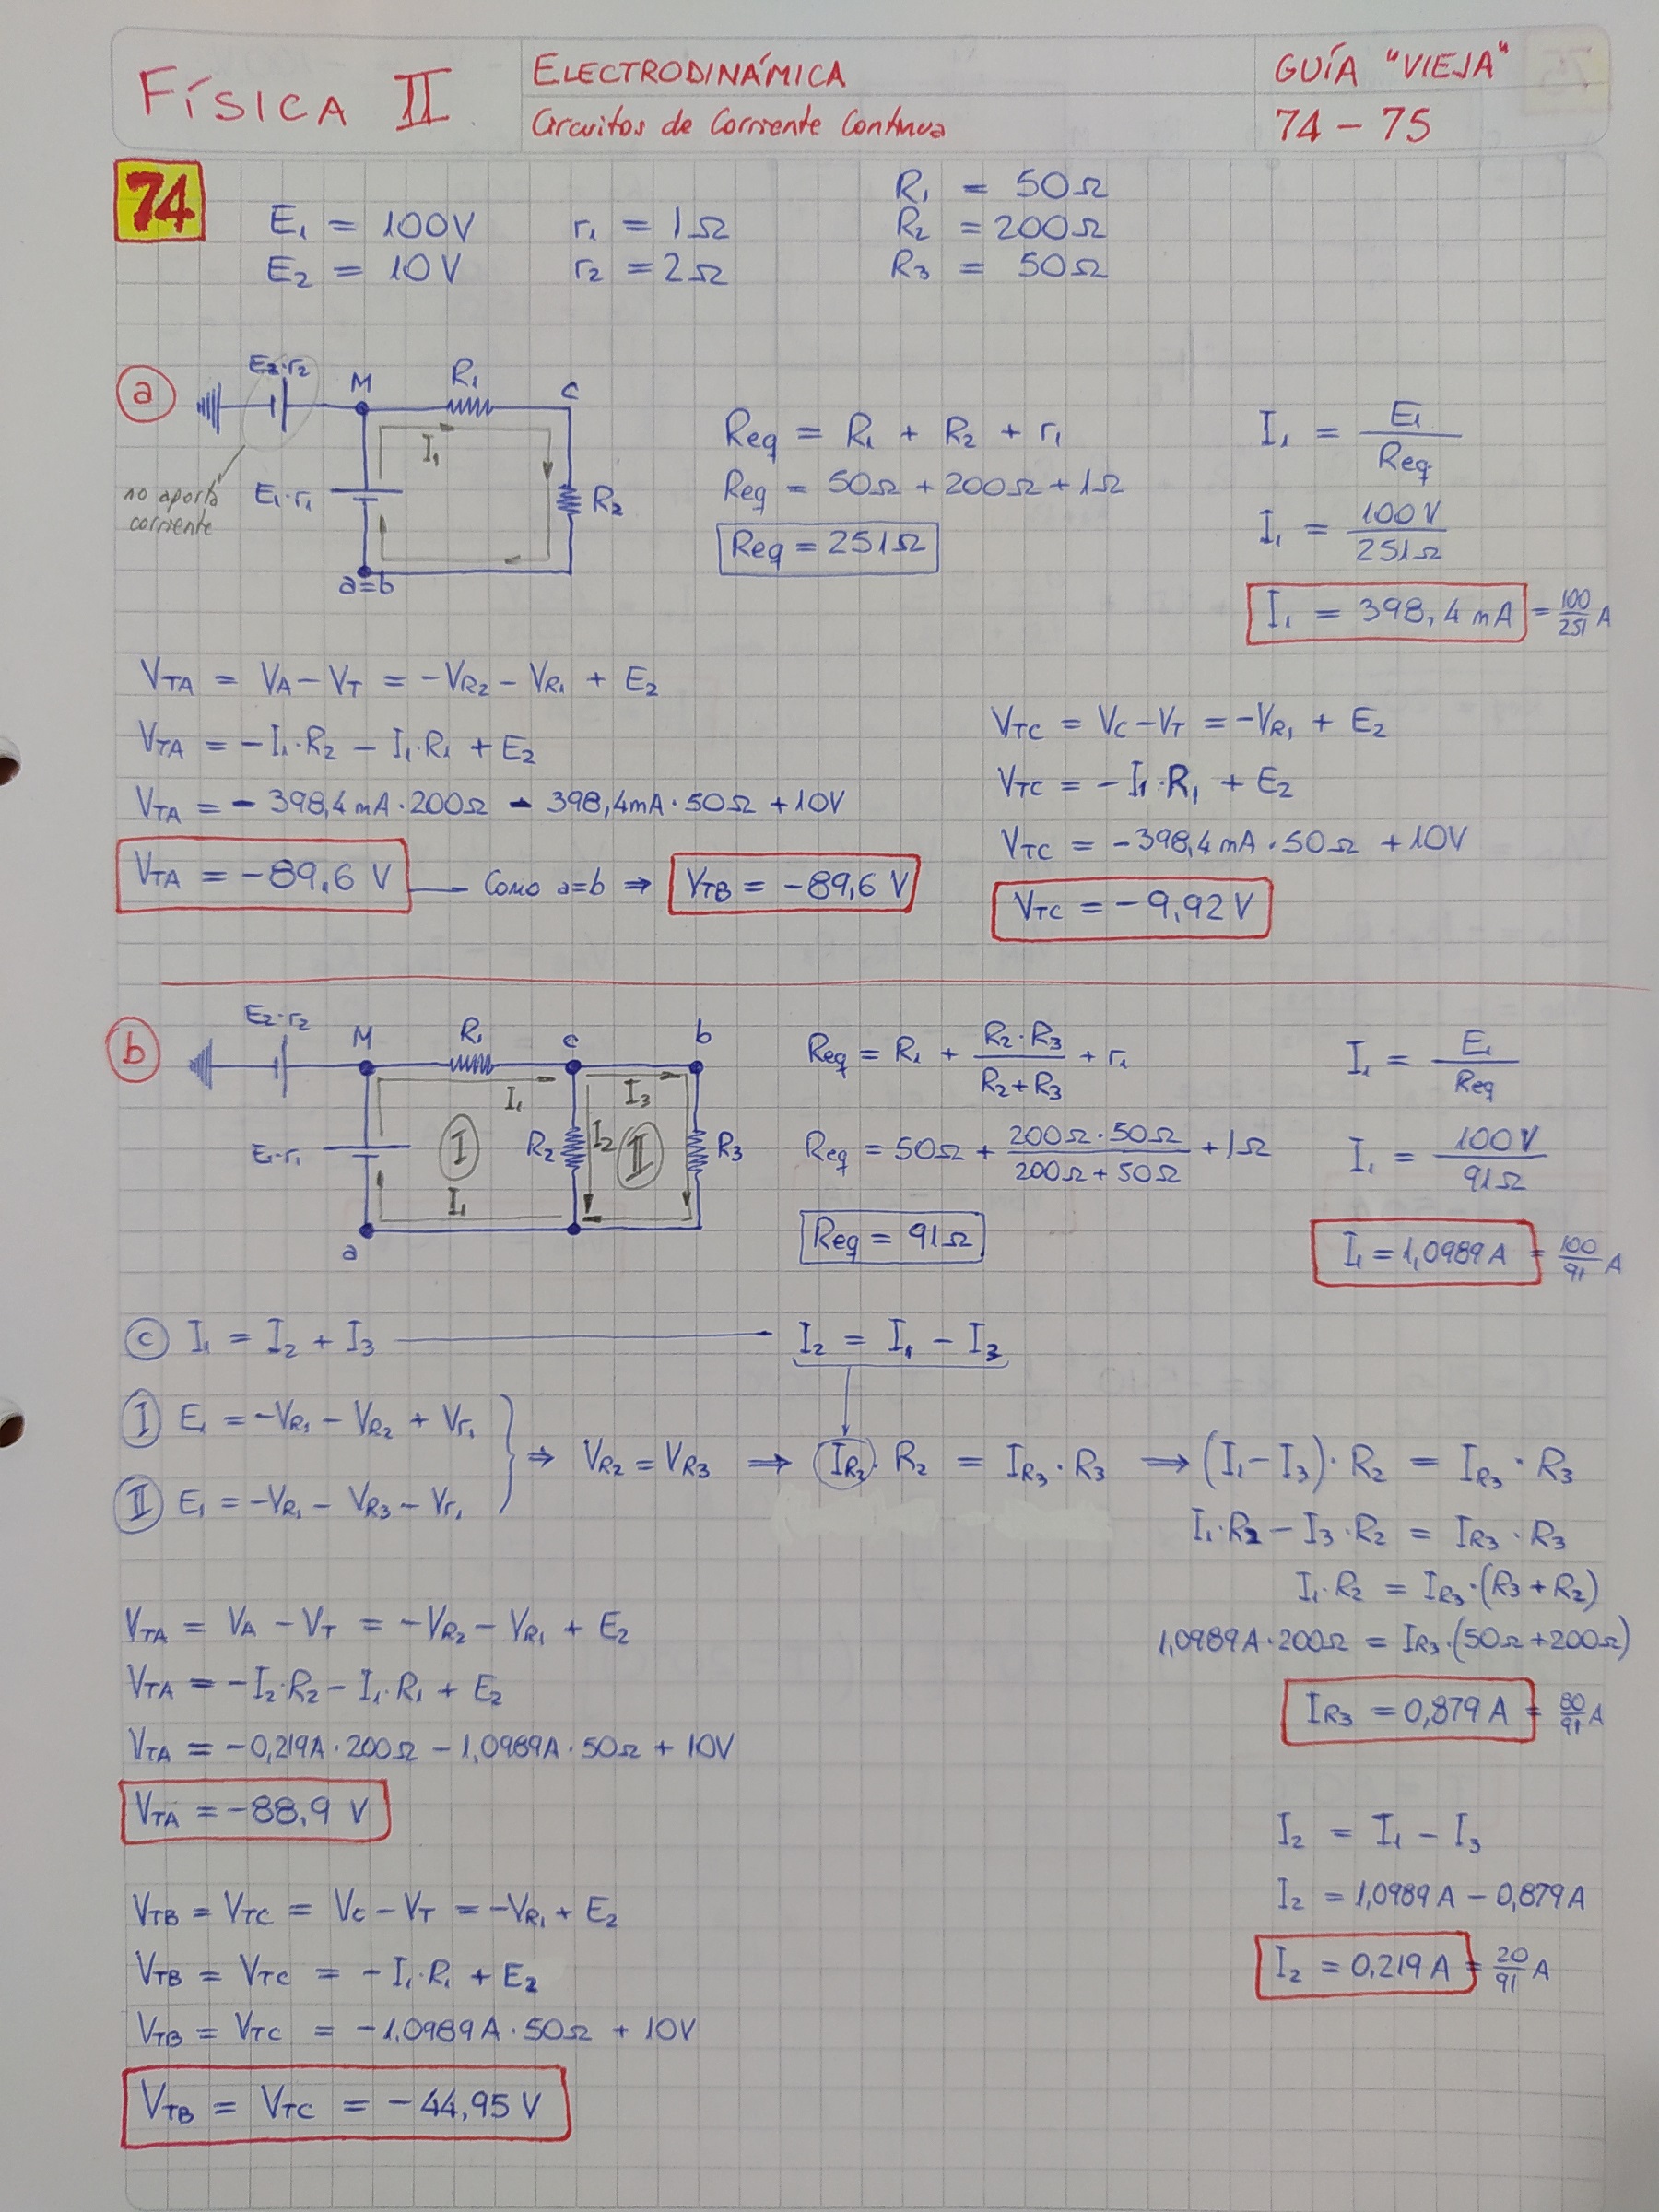 FÍSICA II
ELECTRODINÁMICA
Circuitos de Corriente Continua
GUÍA "VIEJA"
74 - 75
74
E₁ = 100V
E₂ = 10V
r₁ = 1Ω
r₂ = 2Ω
R₁ = 50Ω
R₂ = 200Ω
R₃ = 50Ω
a
E₂·r₂
M
R₁
c
I₁
E₁·r₁
R₂
a=b
no aporta
corriente
Req = R₁ + R₂ + r₁
Req = 50Ω + 200Ω + 1Ω
Req = 251Ω
I₁ = E₁ / Req
I₁ = 100V / 251Ω
I₁ = 398,4 mA = 100/251 A
V_TA = V_A - V_T = -V_R₂ - V_R₁ + E₂
V_TA = -I₁·R₂ - I₁·R₁ + E₂
V_TA = - 398,4mA·200Ω - 398,4mA·50Ω + 10V
V_TA = -89,6 V Como a=b ⇒ V_TB = -89,6 V
V_TC = V_C - V_T = -V_R₁ + E₂
V_TC = -I₁·R₁ + E₂
V_TC = -398,4 mA·50Ω + 10V
V_TC = -9,92 V
b
E₂·r₂
M
R₁
c
b
I₁
I₃
E₁·r₁
I
R₂
I₂
II
R₃
I₁
a
Req = R₁ + R₂·R₃ / R₂+R₃ + r₁
Req = 50Ω + 200Ω·50Ω / 200Ω + 50Ω + 1Ω
Req = 91Ω
I₁ = E₁ / Req
I₁ = 100V / 91Ω
I₁ = 1,0989 A = 100/91 A
c I₁ = I₂ + I₃ I₂ = I₁ - I₃
I E₁ = -V_R₁ - V_R₂ + V_r₁
II E₁ = -V_R₁ - V_R₃ - V_r₁
⇒ V_R₂ = V_R₃ ⇒ I_R₂·R₂ = I_R₃·R₃ ⇒ (I₁-I₃)·R₂ = I_R₃·R₃
I₁·R₂ - I₃·R₂ = I_R₃·R₃
I₁·R₂ = I_R₃·(R₃+R₂)
1,0989A·200Ω = I_R₃·(50Ω+200Ω)
I_R₃ = 0,879 A = 80/91 A
V_TA = V_A - V_T = -V_R₂ - V_R₁ + E₂
V_TA = -I₂·R₂ - I₁·R₁ + E₂
V_TA = -0,219A·200Ω - 1,0989A·50Ω + 10V
V_TA = -88,9 V
I₂ = I₁ - I₃
I₂ = 1,0989 A - 0,879 A
I₂ = 0,219 A = 20/91 A
V_TB = V_TC = V_C - V_T = -V_R₁ + E₂
V_TB = V_TC = -I₁·R₁ + E₂
V_TB = V_TC = -1,0989A·50Ω + 10V
V_TB = V_TC = -44,95 V